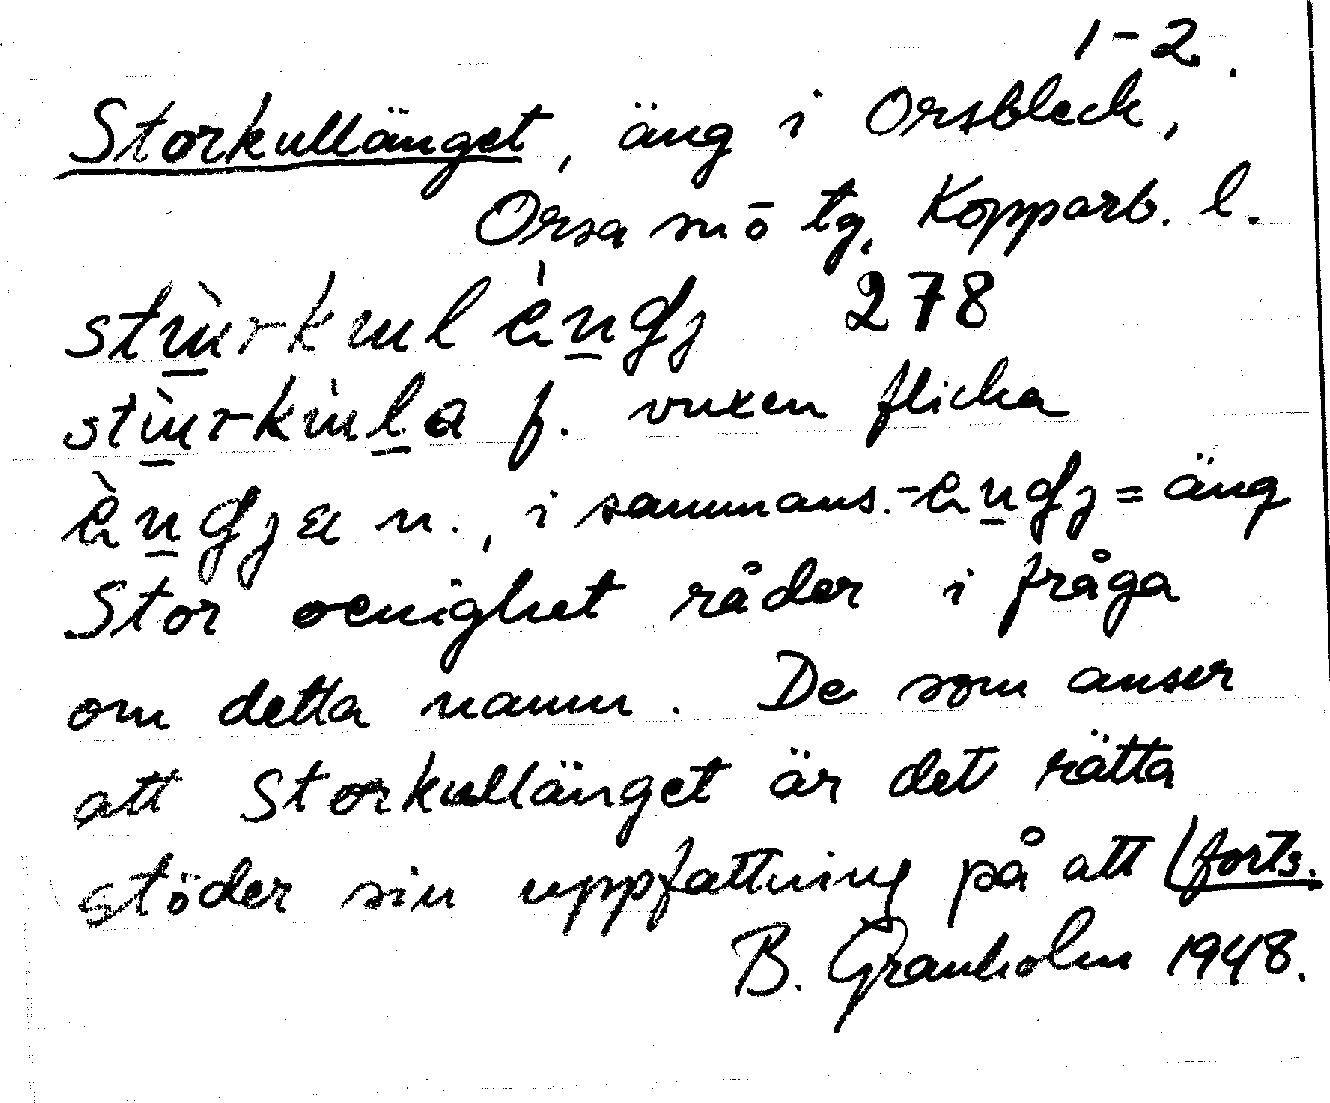 1-2.
Storkullänget, äng i Orsbleck,
Orsa sn ō tg. Kopparb. l.
278
f. vuxen flicka
n., i sammans. = äng
Stor oenighet råder i fråga
om detta namn. De som anser
att Storkullänget är det rätta
stöder sin uppfattning på att (forts.
B. Granholm 1948.